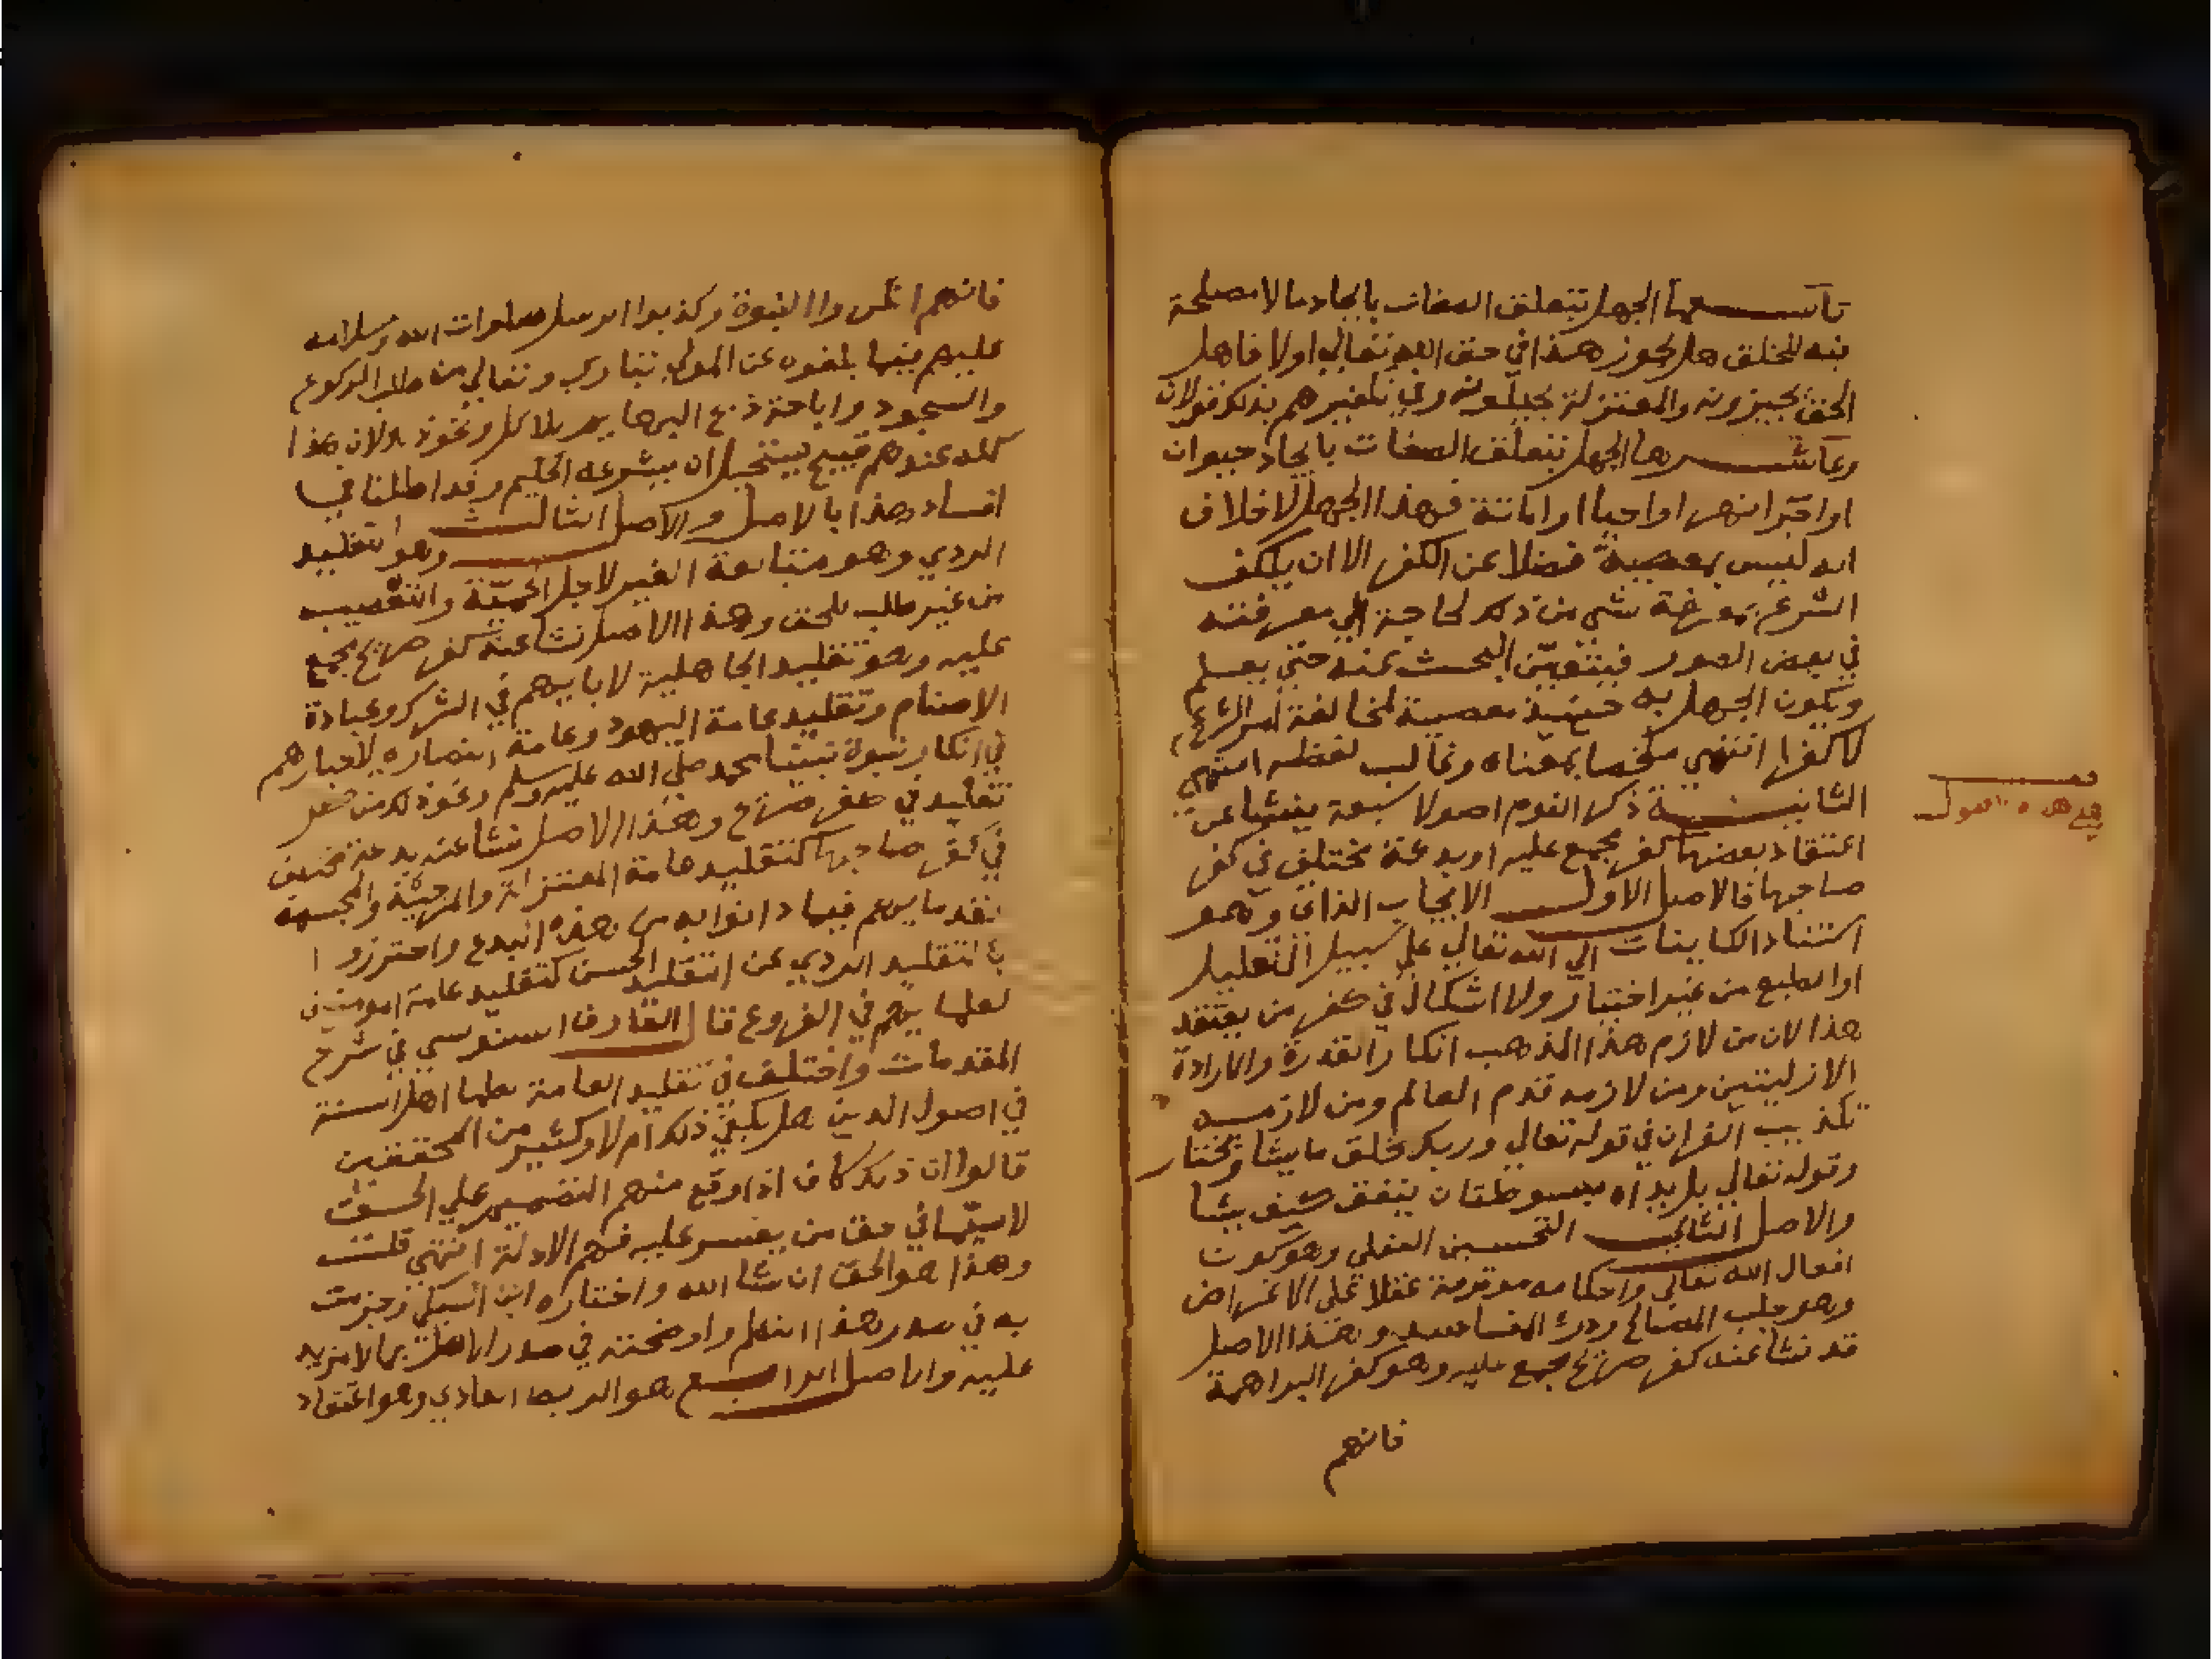 تاسعها الجهل بتعلق الصفات بايجاد ما لا مصلحة
فيه للخلق هل يجوز هذا في حق الله تعالي اولا فاهل
الحق يجيزونه والمعتزلة يحيلونه وفي تكفيرهم بذلك قولان
وعاشرها الجهل بتعلق الصفات بايجاد حيوان
او اجرا نهر او احيا او اماتة فهذا الجهل لا خلاف
انه ليس بمعصية فضلا عن الكفر الا ان يكلف
الشرع بمعرفة شي من ذلك لحاجة الي معرفته
في بعض الصور فيتعين البحث عنه حتي يعلم
ويكون الجهل به حينيذ معصية لمخالفة امر الشرع
لا كفرا انتهي ملخصا بمعناه وغالب لفظه انتهي
الثانية ذكر القوم اصولا سبعة ينشا عن
اعتقاد بعضها كفر مجمع عليه او بدعة مختلف في كفر
صاحبها فالاصل الاول الايجاب الذاتي وهو
استناد الكاينات الي الله تعالي علي سبيل التعليل
او الطبع من غير اختيار ولا اشكال في كفر من يعتقد
هذا لان من لازم هذا المذهب انكار القدرة والارادة
الازليتين ومن لازمه قدم العالم ومن لازمه
تكذيب القران في قوله تعالي وربك يخلق ما يشا ويختار
وقوله تعالي بل يداه مبسوطتان ينفق كيف يشا
والاصل الثاني التحسين العقلي وهو كون
افعال الله تعالي واحكامه موقوفة عقلا علي الاغراض
وهو جلب المصالح ودرء المفاسد وهذا الاصل
قد نشا عنه كفر صريح مجمع عليه وهو كفر البراهمة
فانهم
اصول
فانهم انكروا النبوة وكذبوا الرسل صلوات الله وسلامه
عليهم فيما بلغوه عن المولي تبارك وتعالي من طلب الركوع
والسجود واباحة ذبح البهايم بلا كل ونحوذلك لان هذا
كله عندهم قبيح يستحيل ان يشرعه الحكيم وقد اطلنا في
افساد هذا بالاصل والاصل الثالث وهو التقليد
الردي وهو متابعة الغير لاجل الحمية والتعصب
من غير طلب للحق وهذا الاصل نشا عنه كفر صريح مجمع
عليه وهو تقليد الجاهلية لابايهم في الشرك وعبادة
الاصنام وتقليد عامة اليهود وعامة النصاره لاحبارهم
في انكار نبوة نبينا محمد صلي الله عليه وسلم ونحو ذلك من كل
تقليد في كفر صريح وهذا الاصل نشا عنه بدعة مختلف
في كفر صاحبها كتقليد عامة المعتزلة والمرجئة والمجسمة
لقدمايهم فيما دانوا به من هذه البدع واحترزوا
بالتقليد الردي عن التقليد الحسن كتقليد عامة المومنين
لعلمايهم في الفروع قال العارف السنوسي في شرح
المقدمات واختلف في تقليد العامة علما اهل السنة
في اصول الدين هل يكفي ذلك ام لا وكثير من المحققين
قالوا ان ذلك كاف اذا وقع منهم التصميم علي الحق
لا سيما في حق من يعسر عليه فهم الادلة انتهي قلت
وهذا هو الحق ان شا الله واختاره ابن السبكي وجزمت
به في صدر هذا النظم واوضحته في صدر الاصل بما لا مزيد
عليه والاصل الرابع هو الربط العادي وهو اعتقاد